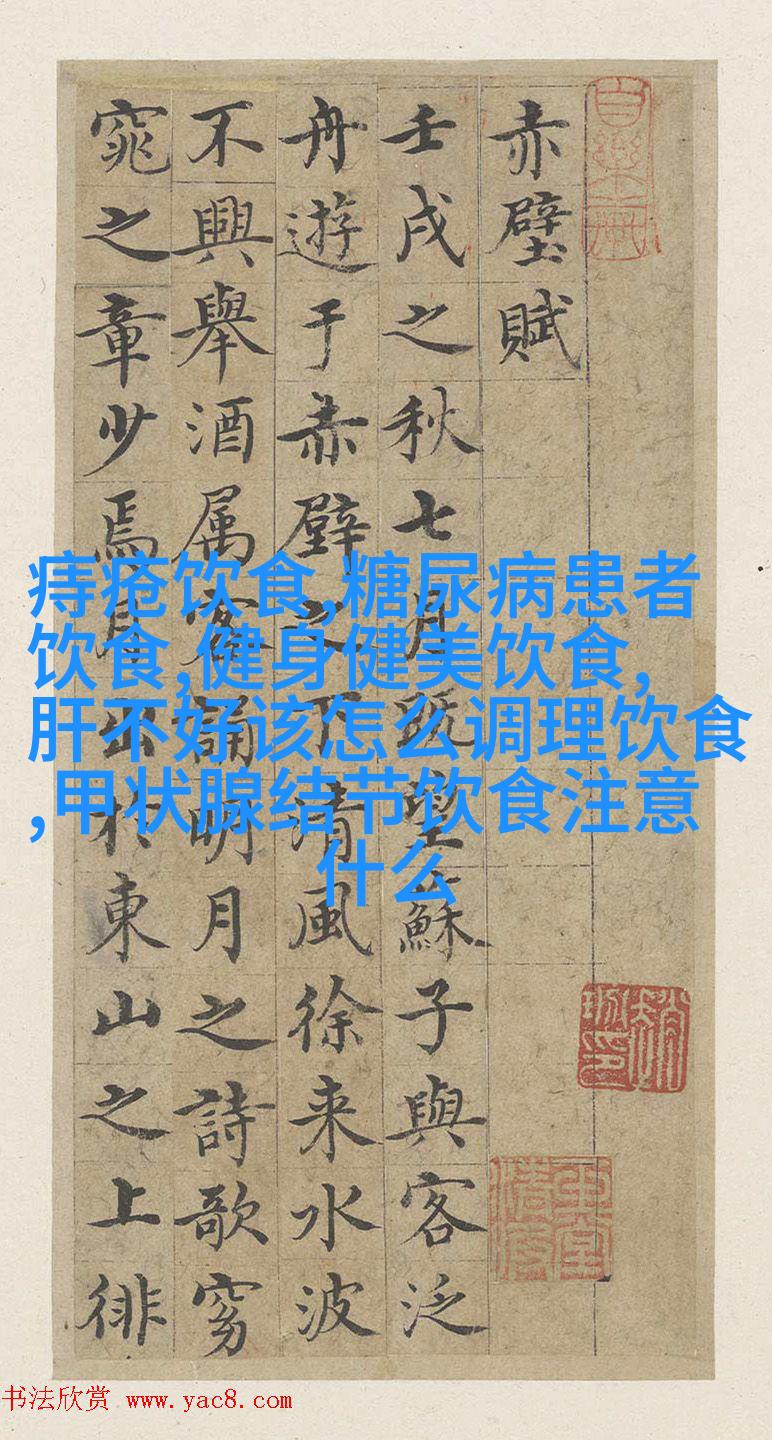 赤壁賦
壬戌之秋七月既望蘇子與客泛
舟遊于赤壁之下清風徐来水波
不興舉酒属客誦明月之詩歌窈
窕之章少焉月出於東山之上徘
痔疮饮食,糖尿病患者
饮食,健身健美饮食,
肝不好该怎么调理饮食
,甲状腺结节饮食注意
什么
书法欣赏 www.yac8.com